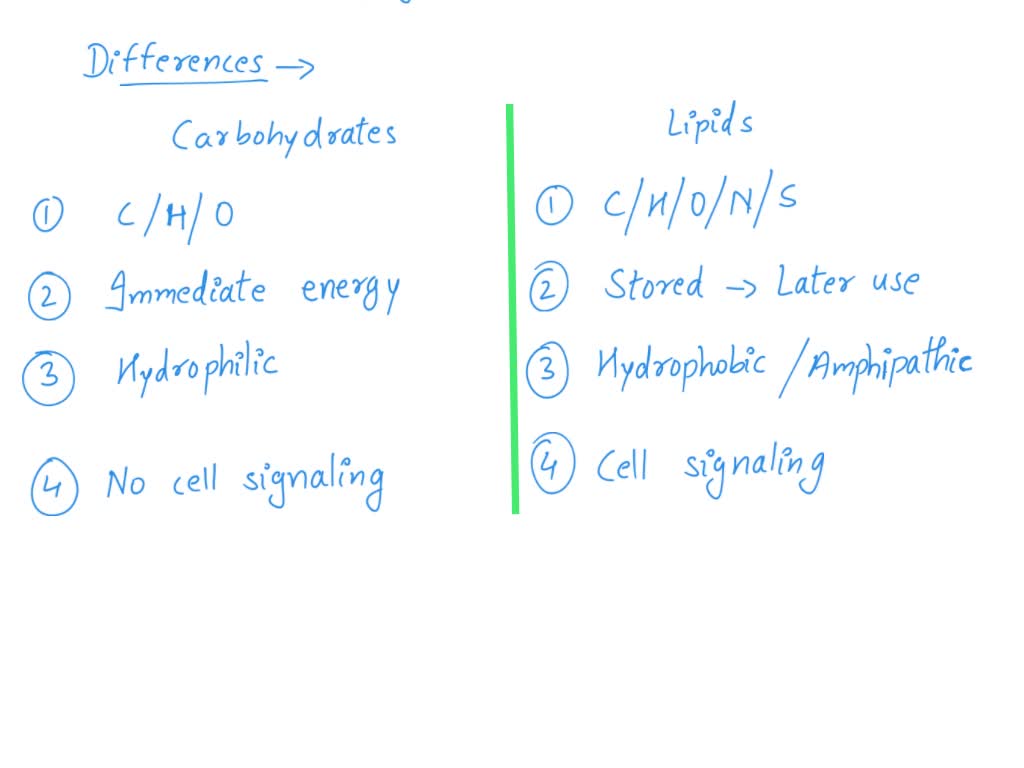 Differences →
Carbohydrates
① C/H/O
② Immediate energy
③ Hydrophilic
④ No cell signaling
Lipids
① C/H/O/N/S
② Stored → Later use
③ Hydrophobic /Amphipathic
④ Cell signaling